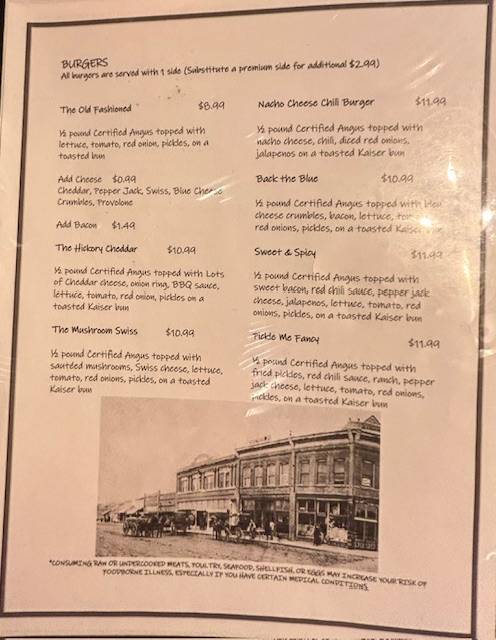 BURGERS
All burgers are served with 1 side (Substitute a premium side for additional $2.99)
The Old Fashioned $8.99
½ pound Certified Angus topped with
lettuce, tomato, red onion, pickles, on a
toasted bun
Add Cheese $0.99
Cheddar, Pepper Jack, Swiss, Blue Cheese
Crumbles, Provolone
Add Bacon $1.49
The Hickory Cheddar $10.99
½ pound Certified Angus topped with Lots
of Cheddar cheese, onion ring, BBQ sauce,
lettuce, tomato, red onion, pickles on a
toasted Kaiser bun
The Mushroom Swiss $10.99
½ pound Certified Angus topped with
sautéd mushrooms, Swiss cheese, lettuce,
tomato, red onions, pickles, on a toasted
Kaiser bun
Nacho Cheese Chili Burger $11.99
½ pound Certified Angus topped with
nacho cheese, chili, diced red onions,
jalapenos on a toasted Kaiser bun
Back the Blue $10.99
½ pound Certified Angus topped with bleu
cheese crumbles, bacon, lettuce,
red onions, pickles, on a toasted Kaiser
Sweet & Spicy $11.99
½ pound Certified Angus topped with
sweet bacon, red chili sauce, pepper jack
cheese, jalapenos, lettuce, tomato, red
onions, pickles, on a toasted Kaiser bun
Tickle Me Fancy $11.99
½ pound Certified Angus topped with
fried pickles, red chili sauce, ranch, pepper
jack cheese, lettuce, tomato, red onions,
pickles, on a toasted Kaiser bun
*CONSUMING RAW OR UNDERCOOKED MEATS, POULTRY, SEAFOOD, SHELLFISH, OR EGGS MAY INCREASE YOUR RISK OF
FOODBORNE ILLNESS, ESPECIALLY IF YOU HAVE CERTAIN MEDICAL CONDITIONS.